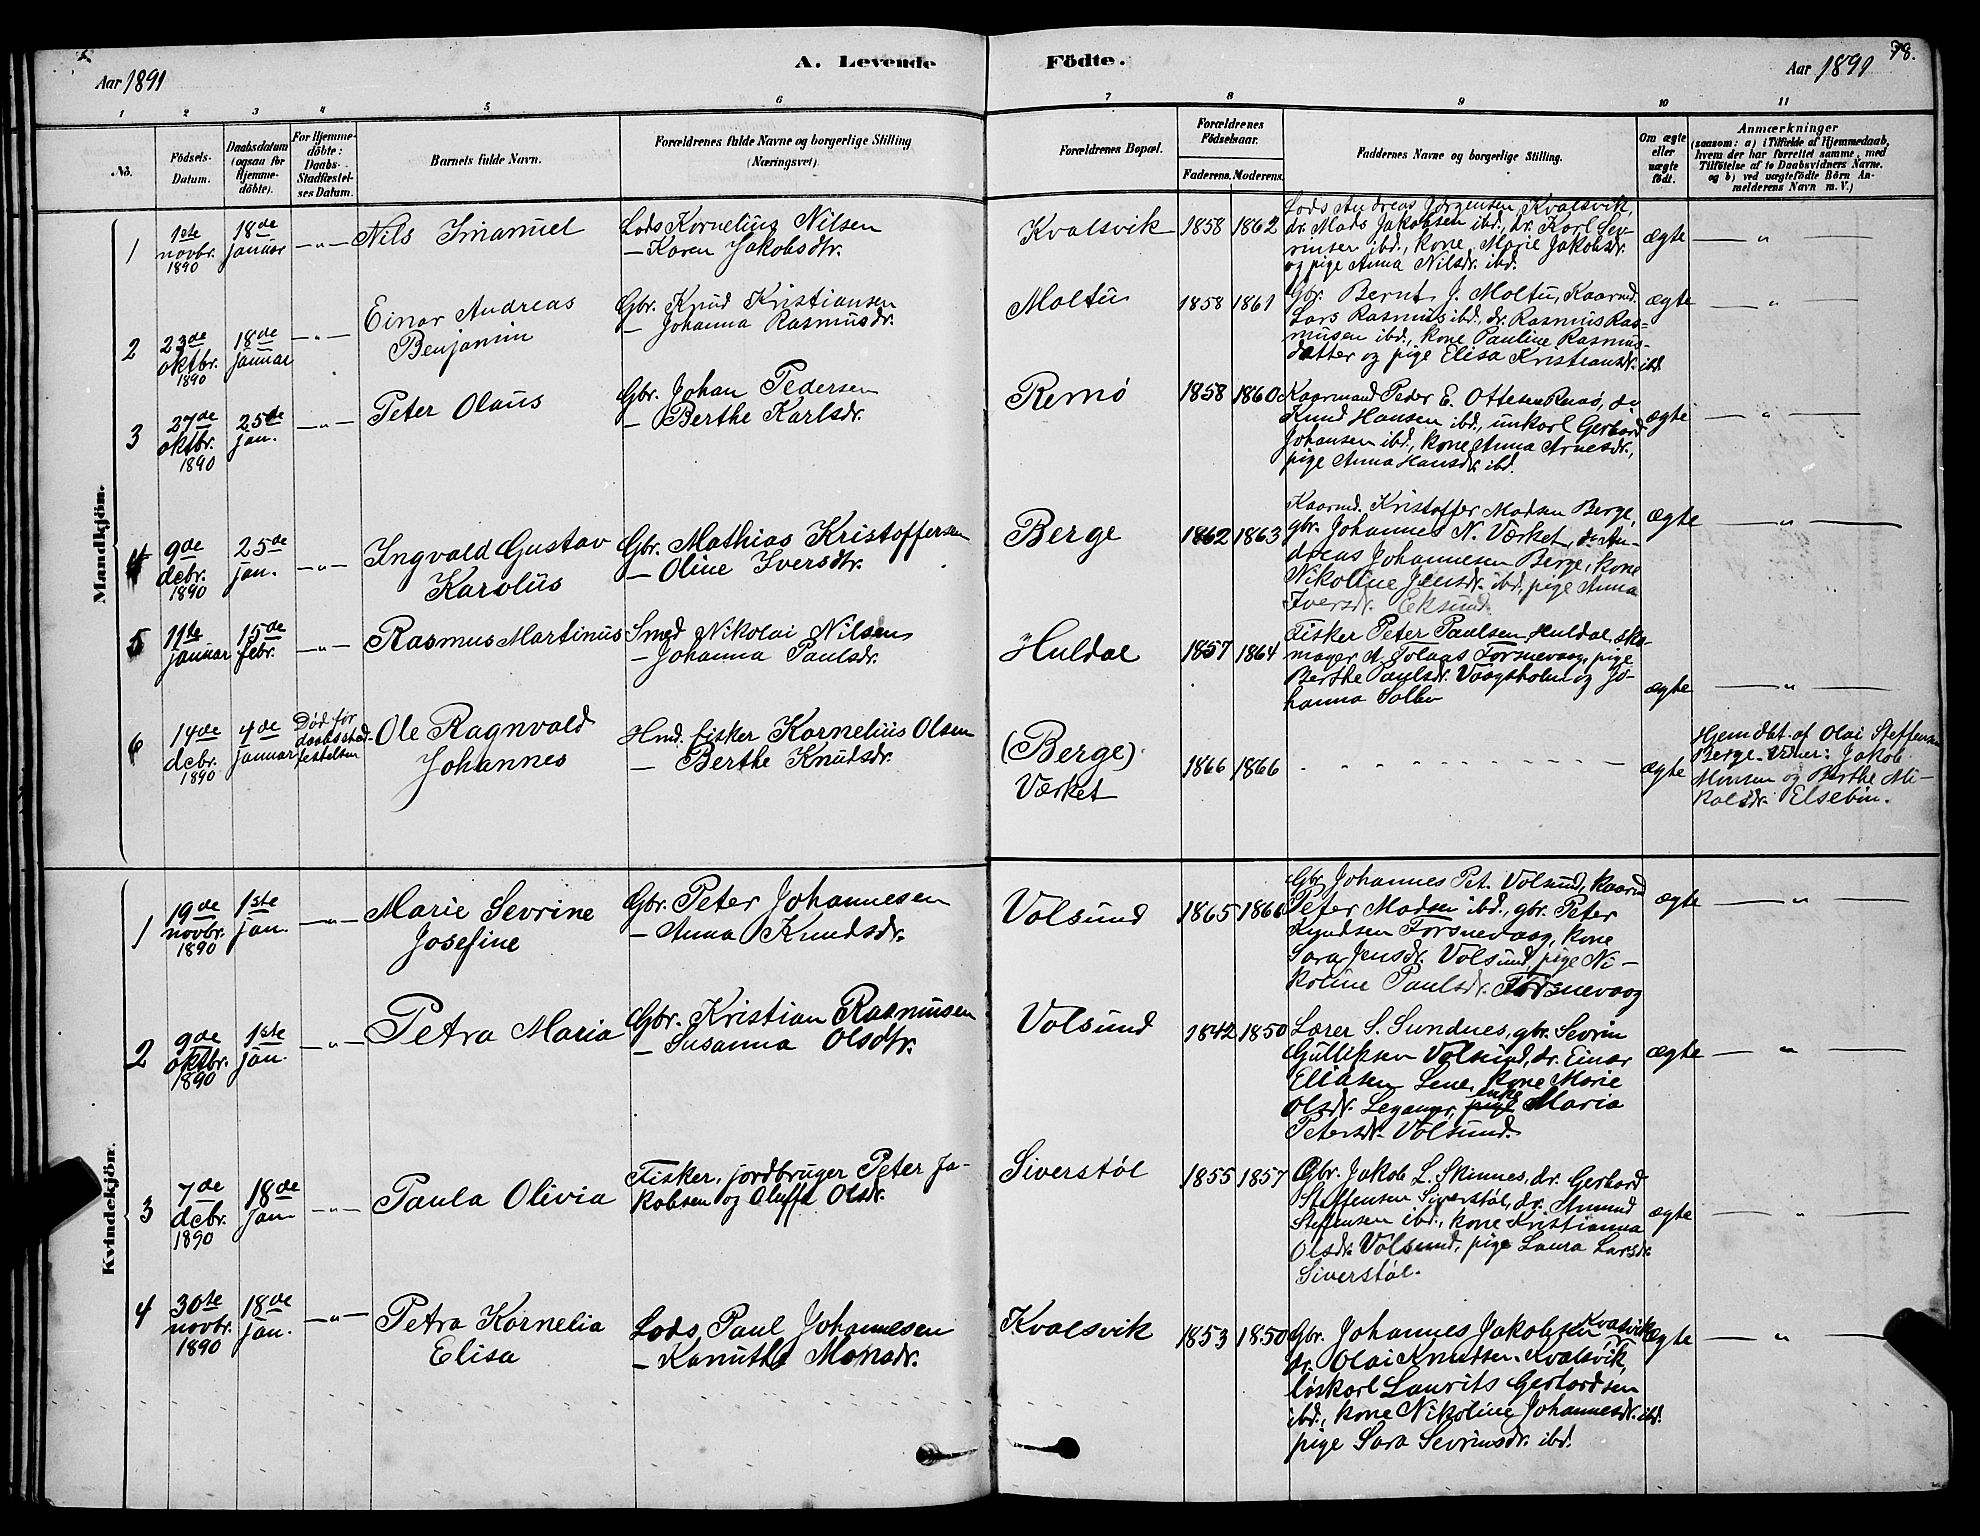 Aar 1891
A. Levende
Födte.
Aar 1891
78.
1 2 3 4 5 6 7 8 9 10 11
No.
Födsels-
Datum.
Daabsdatum
(ogsaa for
Hjemme-
döbte).
For Hjemme-
döbte:
Daabs-
Stadfæstel-
ses Datum.
Barnets fulde Navn.
Forældrenes fulde Navne og borgerlige Stilling
(Næringsvei).
Forældrenes Bopæl.
Forældrenes
Födselsaar.
Faderens. Moderens.
Faddernes Navne og borgerlige Stilling.
Om ægte
eller
uægte
födt.
Anmærkninger
(saasom: a) i Tilfælde af Hjemmedaab,
hvem der har forrettet samme, med
Tilföielse af to Daabsvidners Navne.
og b) ved uægtefödte Börn An-
melderens Navn m. V.)
Mandkjön.
1
1ste
novbr.
1890
18de
januar
— " —
Nils Imanuel
Lods Kornelius Nilsen
— Karen Jakobsdtr.
Kvalsvik
1858 1862
Lods Andreas Jörgensen Kvalsvik,
dr. Mads Jakobsen ibd., dr. Karl Sev-
rinsen ibd., kone Marie Jakobsdr.
og pige Anna Nilsdr. ibd.
ægte
— " —
2
23de
oktbr.
1890
18de
januar
— " —
Einar Andreas
Benjamin
Gbr. Knud Kristiansen
— Johanna Rasmusdr.
Moltu
1858 1861
Gbr. Bernt J. Moltu, Kaarmd.
Lars Rasmus ibd., dr. Rasmus Ras-
musen ibd., kone Pauline Rasmus-
datter og pige Elisa Kristiansdr. ibd.
ægte
— " —
3
27de
oktbr.
1890
25de
jan.
— " —
Peter Olaus
Gbr. Johan Pedersen
— Berthe Karlsdr.
Remö
1858 1860
Kaarmand Peder E. Ottesen Remö, dr.
Knud Hansen ibd., unkarl Gerhard
Johansen ibd., kone Anna Arnesdr.,
pige Anna Hansdr. ibd.
ægte
— " —
4
9de
debr.
1890
25de
jan.
— " —
Ingvald Gustav
Karolus
Gbr. Mathias Kristoffersen
— Oline Iversdtr.
Berge
1862 1863
Kaarmd. Kristoffer Madsen Berge,
gbr. Johannes N. Værket, dr. An-
dreas Johannesen Berge, kone
Nikoline Jensdr. ibd., pige Anna
Iversdr. Eksund.
ægte
— " —
5
11te
januar
15de
febr.
— " —
Rasmus Martinus
Smed Nikolai Nilsen
— Johanna Paulsdr.
Huldal
1857 1864
Fisker Peter Paulsen Huldal, sko-
mager A. Tolaas Forsnevaag, pige
Berthe Paulsdr. Vaagsholm og Jo-
hanna
ægte
— " —
6
14de
debr.
1890
4de
januar
Död för
daabsstad-
festelsen
Ole Ragnvald
Johannes
Hmd. fisker Kornelius Olsen
— Berthe Knudsdr.
(Berge)
Værket
1866 1866
ægte
Hjemdbt. af Olai Steffensen
Berge. Vidner: Jakob
Monsen og Berthe Mi-
kalsdr. Elsebin.
Kvindekjön.
1
19de
novbr.
1890
1ste
jan.
— " —
Marie Sevrine
Josefine
Gbr. Peter Johannesen
— Anna Knudsdr.
Volsund
1865 1866
Gbr. Johannes Pet. Volsund, kaarmd
Peter Madsen ibd., gbr. Peter
Knudsen Forsnevaag, kone
Sara Jensdr. Volsund, pige Ni-
koline Paulsdr. Forsnevaag
ægte
— " —
2
9de
oktbr.
1890
1ste
jan.
— " —
Petra Maria
Gbr. Kristian Rasmusen
— Susanna Olsdtr.
Volsund
1842 1850
Lærer S. Sundnes, gbr. Sevrin
Gulliksen Volsund, dr. Einar
Eliasen Lene, kone Marie
Olsdr. Leganger, pige enke Maria
Petersdr. Volsund.
ægte
— " —
3
7de
debr.
1890
18de
jan
— " —
Paula Olivia
Fisker, jordbruger Peter Ja-
kobsen og Oluffa Olsdr.
Siverstöl
1855 1857
Gbr. Jakob L. Skinnes, dr. Gerhard
Steffensen Siverstöl, dr. Amund
Steffensen ibd., kone Kristianna
Olsdr. Volsund, pige Laura Larsdr.
Siverstöl.
ægte
— " —
4
30te
novbr.
1890
18de
jan.
— " —
Petra Kornelia
Elisa
Lods Paul Johannesen
— Kanuthe Monsdr.
Kvalsvik
1853 1850
Gbr. Johannes Jakobsen Kvalsvik
dr. Olai Knudsen Kvalsvik,
löskarl Laurits Gerhardsen
ibd., kone Nikoline Johannesdr. ibd.
pige Sara Sevrinsdr. ibd.
ægte
— " —